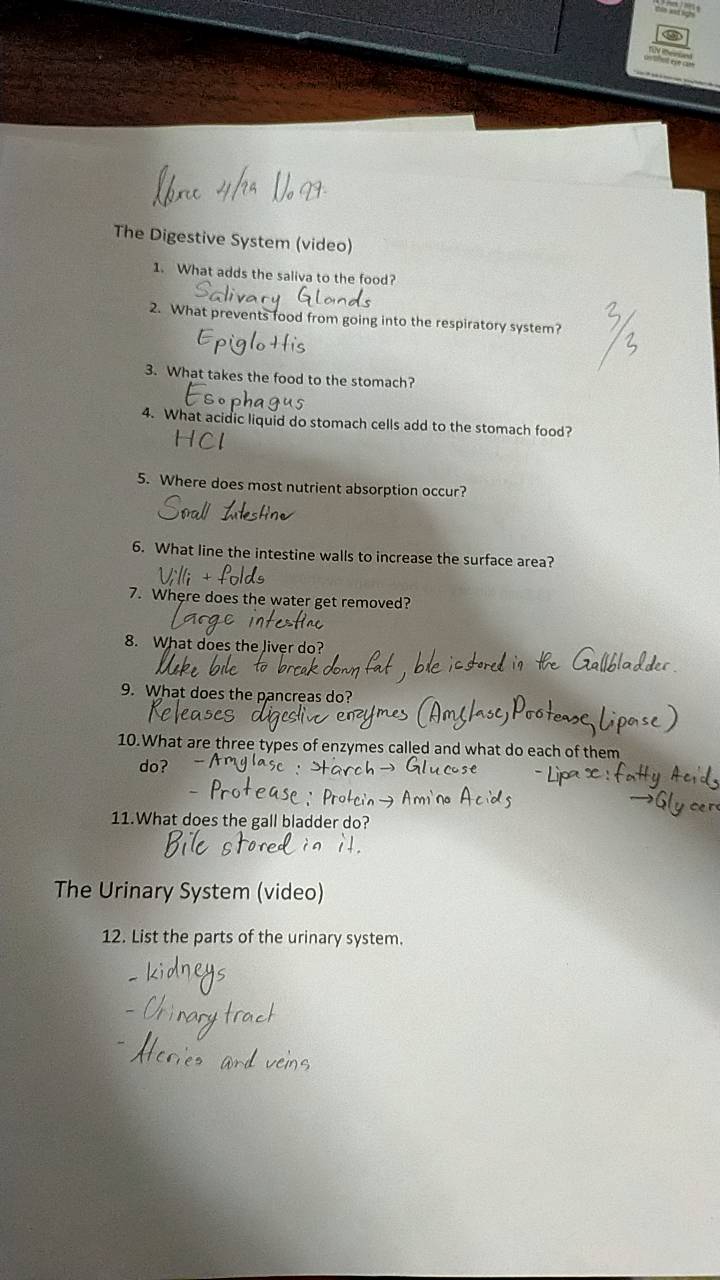 4/29 No 27.
The Digestive System (video)
1. What adds the saliva to the food?
Salivary Glands
2. What prevents food from going into the respiratory system?
3/3
Epiglottis
3. What takes the food to the stomach?
Esophagus
4. What acidic liquid do stomach cells add to the stomach food?
HCl
5. Where does most nutrient absorption occur?
Small Intestine
6. What line the intestine walls to increase the surface area?
Villi + folds
7. Where does the water get removed?
Large intestine
8. What does the liver do?
Make bile to break down fat, bile is stored in the Gallbladder.
9. What does the pancreas do?
Releases digestive enzymes (Amylase, Protease, Lipase)
10.What are three types of enzymes called and what do each of them
do? - Amylase : starch → Glucose - Lipase : fatty Acids
- Protease : Protein → Amino Acids → Glycero
11.What does the gall bladder do?
Bile stored in it.
The Urinary System (video)
12. List the parts of the urinary system.
- kidneys
- Urinary tract
- Ateries and veins